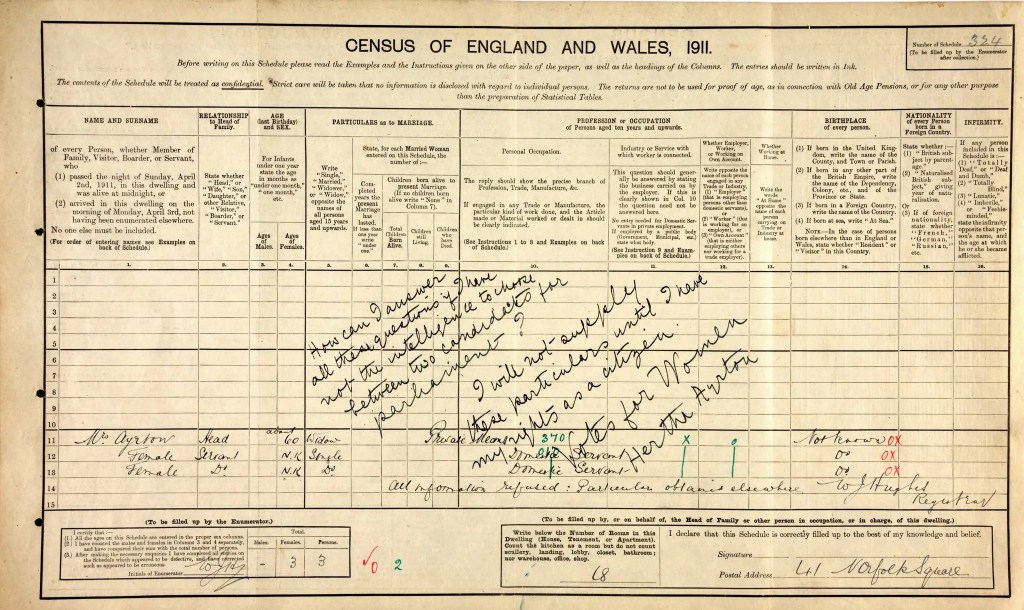 CENSUS OF ENGLAND AND WALES, 1911.
Number of Schedule 324
(To be filled up by the Enumerator after collection.)
Before writing on this Schedule please read the Examples and the Instructions given on the other side of the paper, as well as the headings of the Columns. The entries should be written in Ink.
The contents of the Schedule will be treated as confidential. Strict care will be taken that no information is disclosed with regard to individual persons. The returns are not to be used for proof of age, as in connection with Old Age Pensions, or for any other purpose
than the preparation of Statistical Tables.
NAME AND SURNAME
of every Person, whether Member of
Family, Visitor, Boarder, or Servant,
who
(1) passed the night of Sunday, April
2nd, 1911, in this dwelling and
was alive at midnight, or
(2) arrived in this dwelling on the
morning of Monday, April 3rd, not
having been enumerated elsewhere.
No one else must be included.
(For order of entering names see Examples on
back of Schedule.)
RELATIONSHIP
to Head of
Family.
State whether
"Head," or
"Wife," "Son,"
"Daughter," or
other Relative,
"Visitor,"
"Boarder," or
"Servant."
AGE
(last Birthday)
and SEX.
For Infants
under one year
state the age
in months as
"under one month,"
"one month,"
etc.
Ages
of
Males.
Ages
of
Females.
PARTICULARS as to MARRIAGE.
Write
"Single,"
"Married,"
"Widower,"
or "Widow,"
opposite the
names of
all persons
aged 15 years
and upwards.
State, for each Married Woman
entered on this Schedule, the
number of:—
Completed
years the
present
Marriage
has
lasted.
If less than
one year
write
"under
one."
Children born alive to
present Marriage.
(If no children born
alive write "None" in
Column 7).
Total
Children
Born
Alive.
Children
still
Living.
Children
who
have
Died.
PROFESSION or OCCUPATION
of Persons aged ten years and upwards.
Personal Occupation.
The reply should show the precise branch of
Profession, Trade, Manufacture, &c.
If engaged in any Trade or Manufacture, the
particular kind of work done, and the Article
made or Material worked or dealt in should
be clearly indicated.
(See Instructions 1 to 8 and Examples on back
of Schedule.)
Industry or Service with
which worker is connected.
This question should gener-
ally be answered by stating
the business carried on by
the employer. If this is
clearly shown in Col. 10
the question need not be
answered here.
No entry needed for Domestic Ser-
vants in private employment.
If employed by a public body
(Government, Municipal, etc.)
state what body.
(See Instruction 9 and Exam-
ples on back of Schedule.)
Whether Employer,
Worker,
or Working on
Own Account.
Write opposite the
name of each person
engaged in any
Trade or Industry,
(1) "Employer"
(that is employing
persons other than
domestic servants),
or
(2) "Worker" (that
is working for an
employer), or
(3) "Own Account"
(that is neither
employing others
nor working for a
trade employer).
Whether
Working at
Home.
Write the
words
"At Home"
opposite the
name of each
person
carrying on
Trade or
Industry at
home.
BIRTHPLACE
of every person.
(1) If born in the United
Kingdom, write the name of the
County, and Town or Parish.
(2) If born in any other part of
the British Empire, write
the name of the Dependency,
Colony, etc., and of the
Province or State.
(3) If born in a Foreign Country,
write the name of the Country.
(4) If born at sea, write "At Sea."
NOTE.—In the case of persons
born elsewhere than in England or
Wales, state whether "Resident" or
"Visitor" in this Country.
NATIONALITY
of every Person
born in a
Foreign Country.
State whether:—
(1) "British sub-
ject by parent-
age."
(2) "Naturalised
British sub-
ject," giving
year of natu-
ralisation.
Or
(3) If of foreign
nationality,
state whether
"French,"
"German,"
"Russian,"
etc.
INFIRMITY.
If any person
included in this
Schedule is:—
(1) "Totally
Deaf," or "Deaf
and Dumb,"
(2) "Totally
Blind,"
(3) "Lunatic,"
(4) "Imbecile,"
or "Feeble-
minded,"
state the
infirmity opposite
that person's
name, and
the age at which
he or she became
afflicted.
1. 2. 3. 4. 5. 6. 7. 8. 9. 10. 11. 12. 13. 14. 15. 16.
1
2
3
4
5
6
7
8
9
10
How can I answer
all these questions if I have
not the intelligence to choose
between two candidates for
parliament?
I will not supply
these particulars until I have
my rights as a citizen.
Votes for Women
Hertha Ayrton
11 Mrs Ayrton Head about 60 Widow Private Means 370 x 0 Not known OX
12 Female Servant N.K Single Domestic Servant do OX
13 Female Do N.K Do Domestic Servant do OX
14 All information refused: Particulars obtained elsewhere, W J Hughes
15 Registrar
(To be filled up by the Enumerator.)
I certify that:—
(1.) All the ages on this Schedule are entered in the proper sex columns.
(2.) I have counted the males and females in Columns 3 and 4 separately,
and have compared their sum with the total number of persons.
(3.) After making the necessary enquiries I have completed all entries on
the Schedule which appeared to be defective, and have corrected
such as appeared to be erroneous.
Initials of Enumerator
Total.
Males. Females. Persons.
- 3 3
0 2
(To be filled up by, or on behalf of, the Head of Family or other person in occupation, or in charge, of this dwelling.)
Write below the Number of Rooms in this
Dwelling (House, Tenement, or Apartment).
Count the kitchen as a room but do not count
scullery, landing, lobby, closet, bathroom;
nor warehouse, office, shop.
18
I declare that this Schedule is correctly filled up to the best of my knowledge and belief.
Signature
Postal Address 41 Norfolk Square